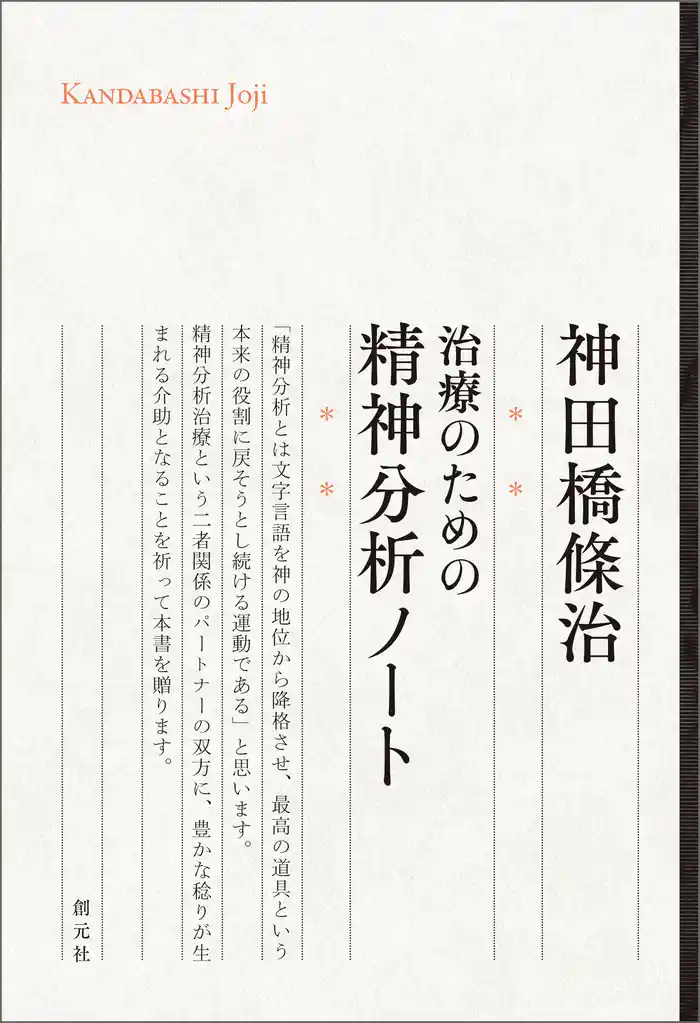 KANDABASHI Joji
神田橋條治
＊ ＊
治療のための
精神分析ノート
＊ ＊
「精神分析とは文字言語を神の地位から降格させ、最高の道具という
本来の役割に戻そうとし続ける運動である」と思います。
精神分析治療という二者関係のパートナーの双方に、豊かな稔りが生
まれる介助となることを祈って本書を贈ります。
創元社